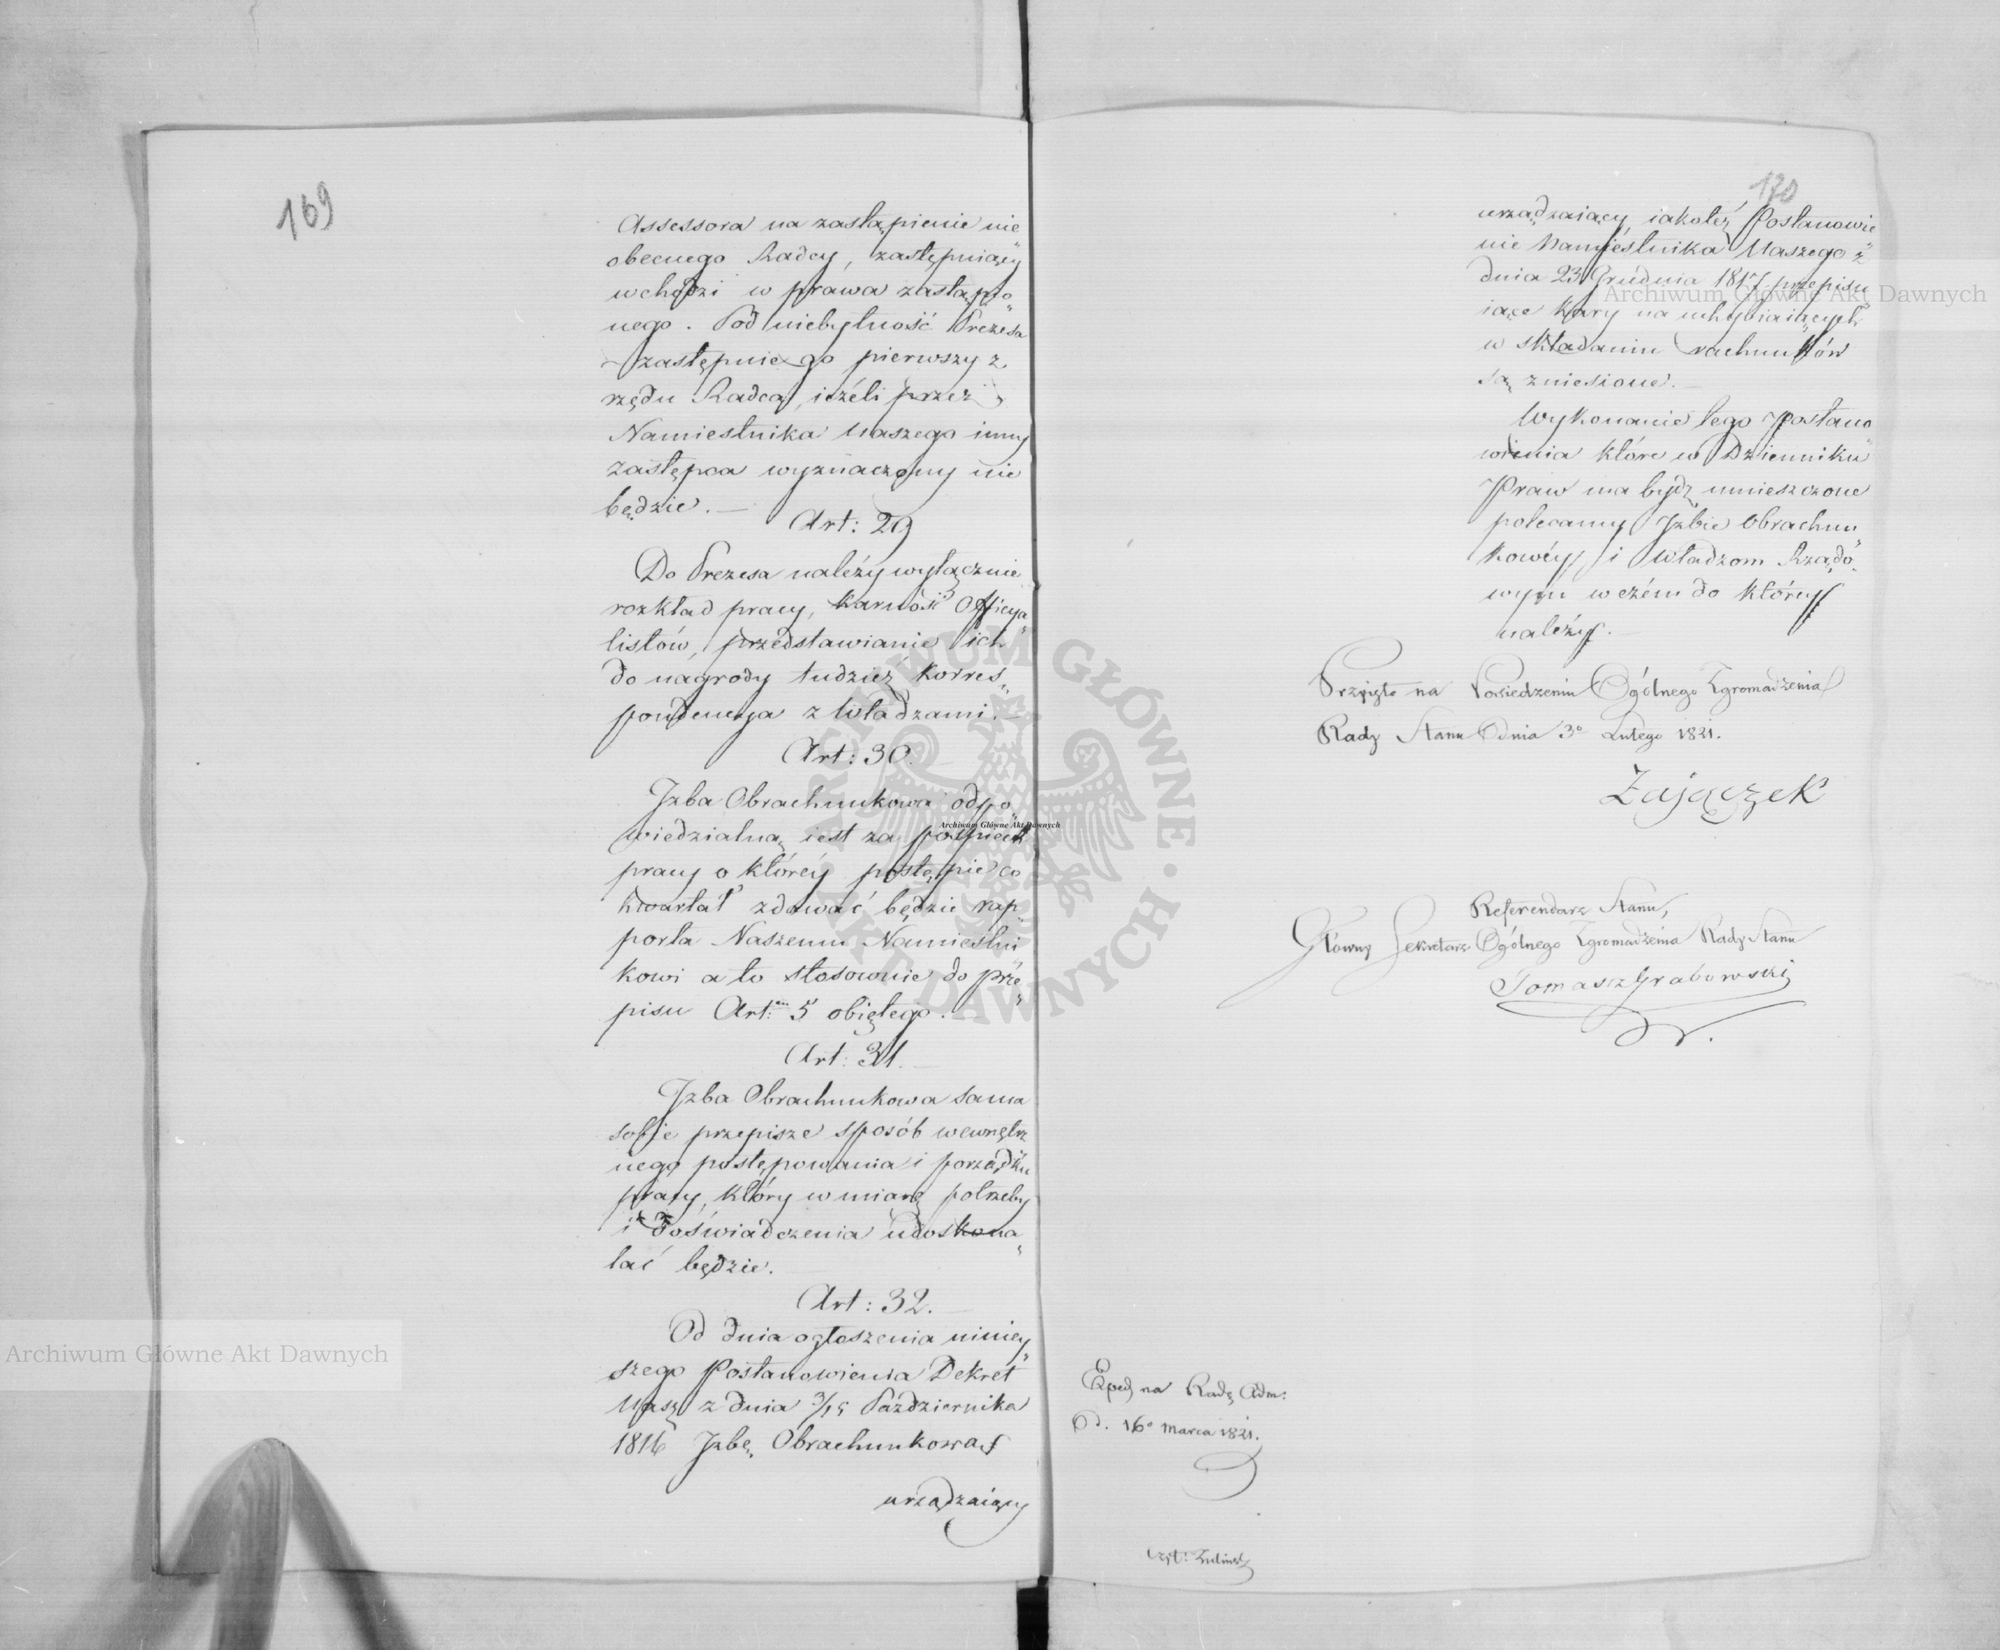 169
Assessora na zastąpienie nie„
obecnego Radcy, zastępuiący
wchodzi w prawa zastąpio„
nego. Pod niebytność Prezesa
zastępuie go pierwszy z
rzędu Radca, ieżeli przez
Namiestnika Naszego inny
zastępca wyznaczony nie
będzie. —
Art: 29
Do Prezesa należy wyłącznie
rozkład pracy, karność Officya„
listów, przedstawianie ich
do nagrody tudzież korres„
pondencya z Władzami. —
Art: 30.
Izba Obrachunkowa odpo„
wiedzialną iest za pośpiech
pracy o któréy postępie co
kwartał zdawać będzie rap„
porta Naszemu Namiestni„
kowi a to stosownie do prze„
pisu Art: 5 obiętego.
Art: 31.
Izba Obrachunkowa sama
sobie przepisze sposób wewnętrz„
nego postępowania i porządku
pracy, który w miarę potrzeby
i doświadczenia udoskona„
lać będzie.
Art: 32.
Od dnia ogłoszenia niniey„
szego Postanowienia Dekret
Nasz z dnia 3/15 Października
1816 Izbę Obrachunkową
urządzaiący
170
urządzaiący iakoteż Postanowie„
nie Namiestnika Naszego z
dnia 23 Grudnia 1817 przepisu„
iące kary na uchybiaiących
w składaniu rachunków
są zniesione. —
Wykonanie tego Postano„
wienia które w Dzienniku
Praw ma bydź umieszczone
polecamy Izbie Obrachun„
kowéy i Władzom Rządo„
wym w czém do któréy
należy. —
Przyięto na Posiedzeniu Ogólnego Zgromadzenia
Rady Stanu dnia 3º Lutego 1821.
Zajączek
Referendarz Stanu,
Główny Sekretarz Ogólnego Zgromadzenia Rady Stanu
Tomasz Grabowski
Exped na Radę Adm:
d. 16º Marca 1821.
Archiwum Główne Akt Dawnych
Archiwum Główne Akt Dawnych
Archiwum Główne Akt Dawnych
ARCHIWUM GŁÓWNE · AKT DAWNYCH ·